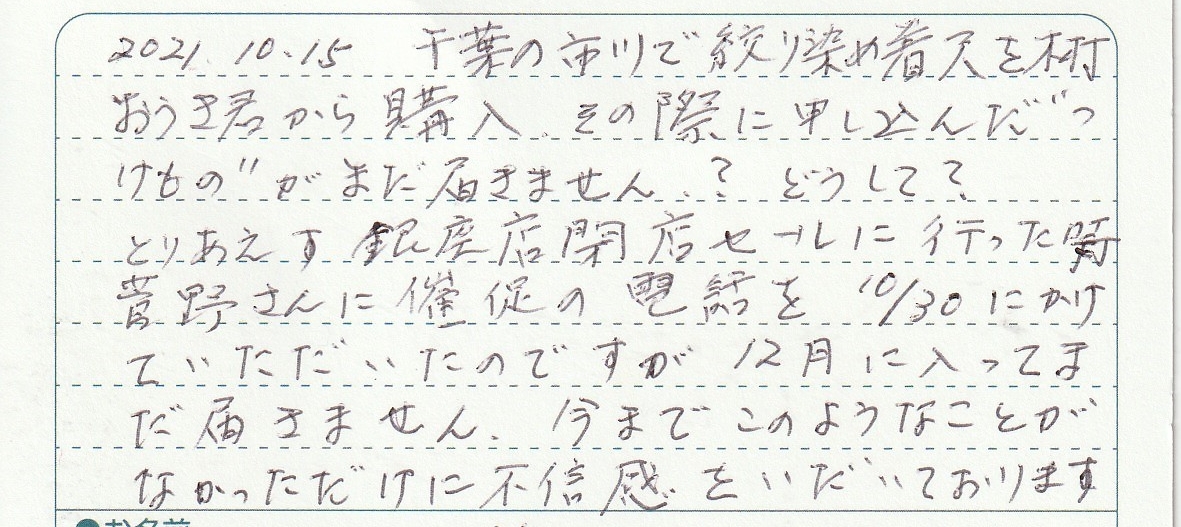 2021.10.15 千葉の市川で絞り染め着尺を村
おうき君から購入.その際に申し込んだ"つ
けもの"がまだ届きません.?どうして?
とりあえず銀座店閉店セールに行った時
菅野さんに催促の電話を10/30にかけ
ていただいたのですが12月に入ってま
だ届きません.今までこのようなことが
なかっただけに不信感をいだいております